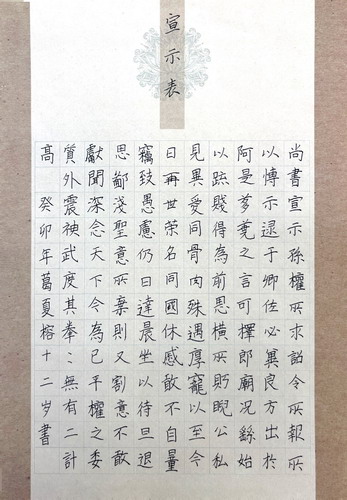 宣示表
尚書宣示孫權所求詔令所報所
以博示逮于卿佐必冀良方出於
阿是芻蕘之言可擇郎廟況繇始
以疏賤得為前恩橫所眄睨公私
見異愛同骨肉殊遇厚寵以至今
日再世荣名同國休慼敢不自量
竊致愚慮仍日達晨坐以待旦退
思鄙淺聖意所棄則又割意不敢
獻聞深念天下今為已平權之委
質外震神武度其拳〻無有二計
高 癸卯年葛夏榕十二岁書